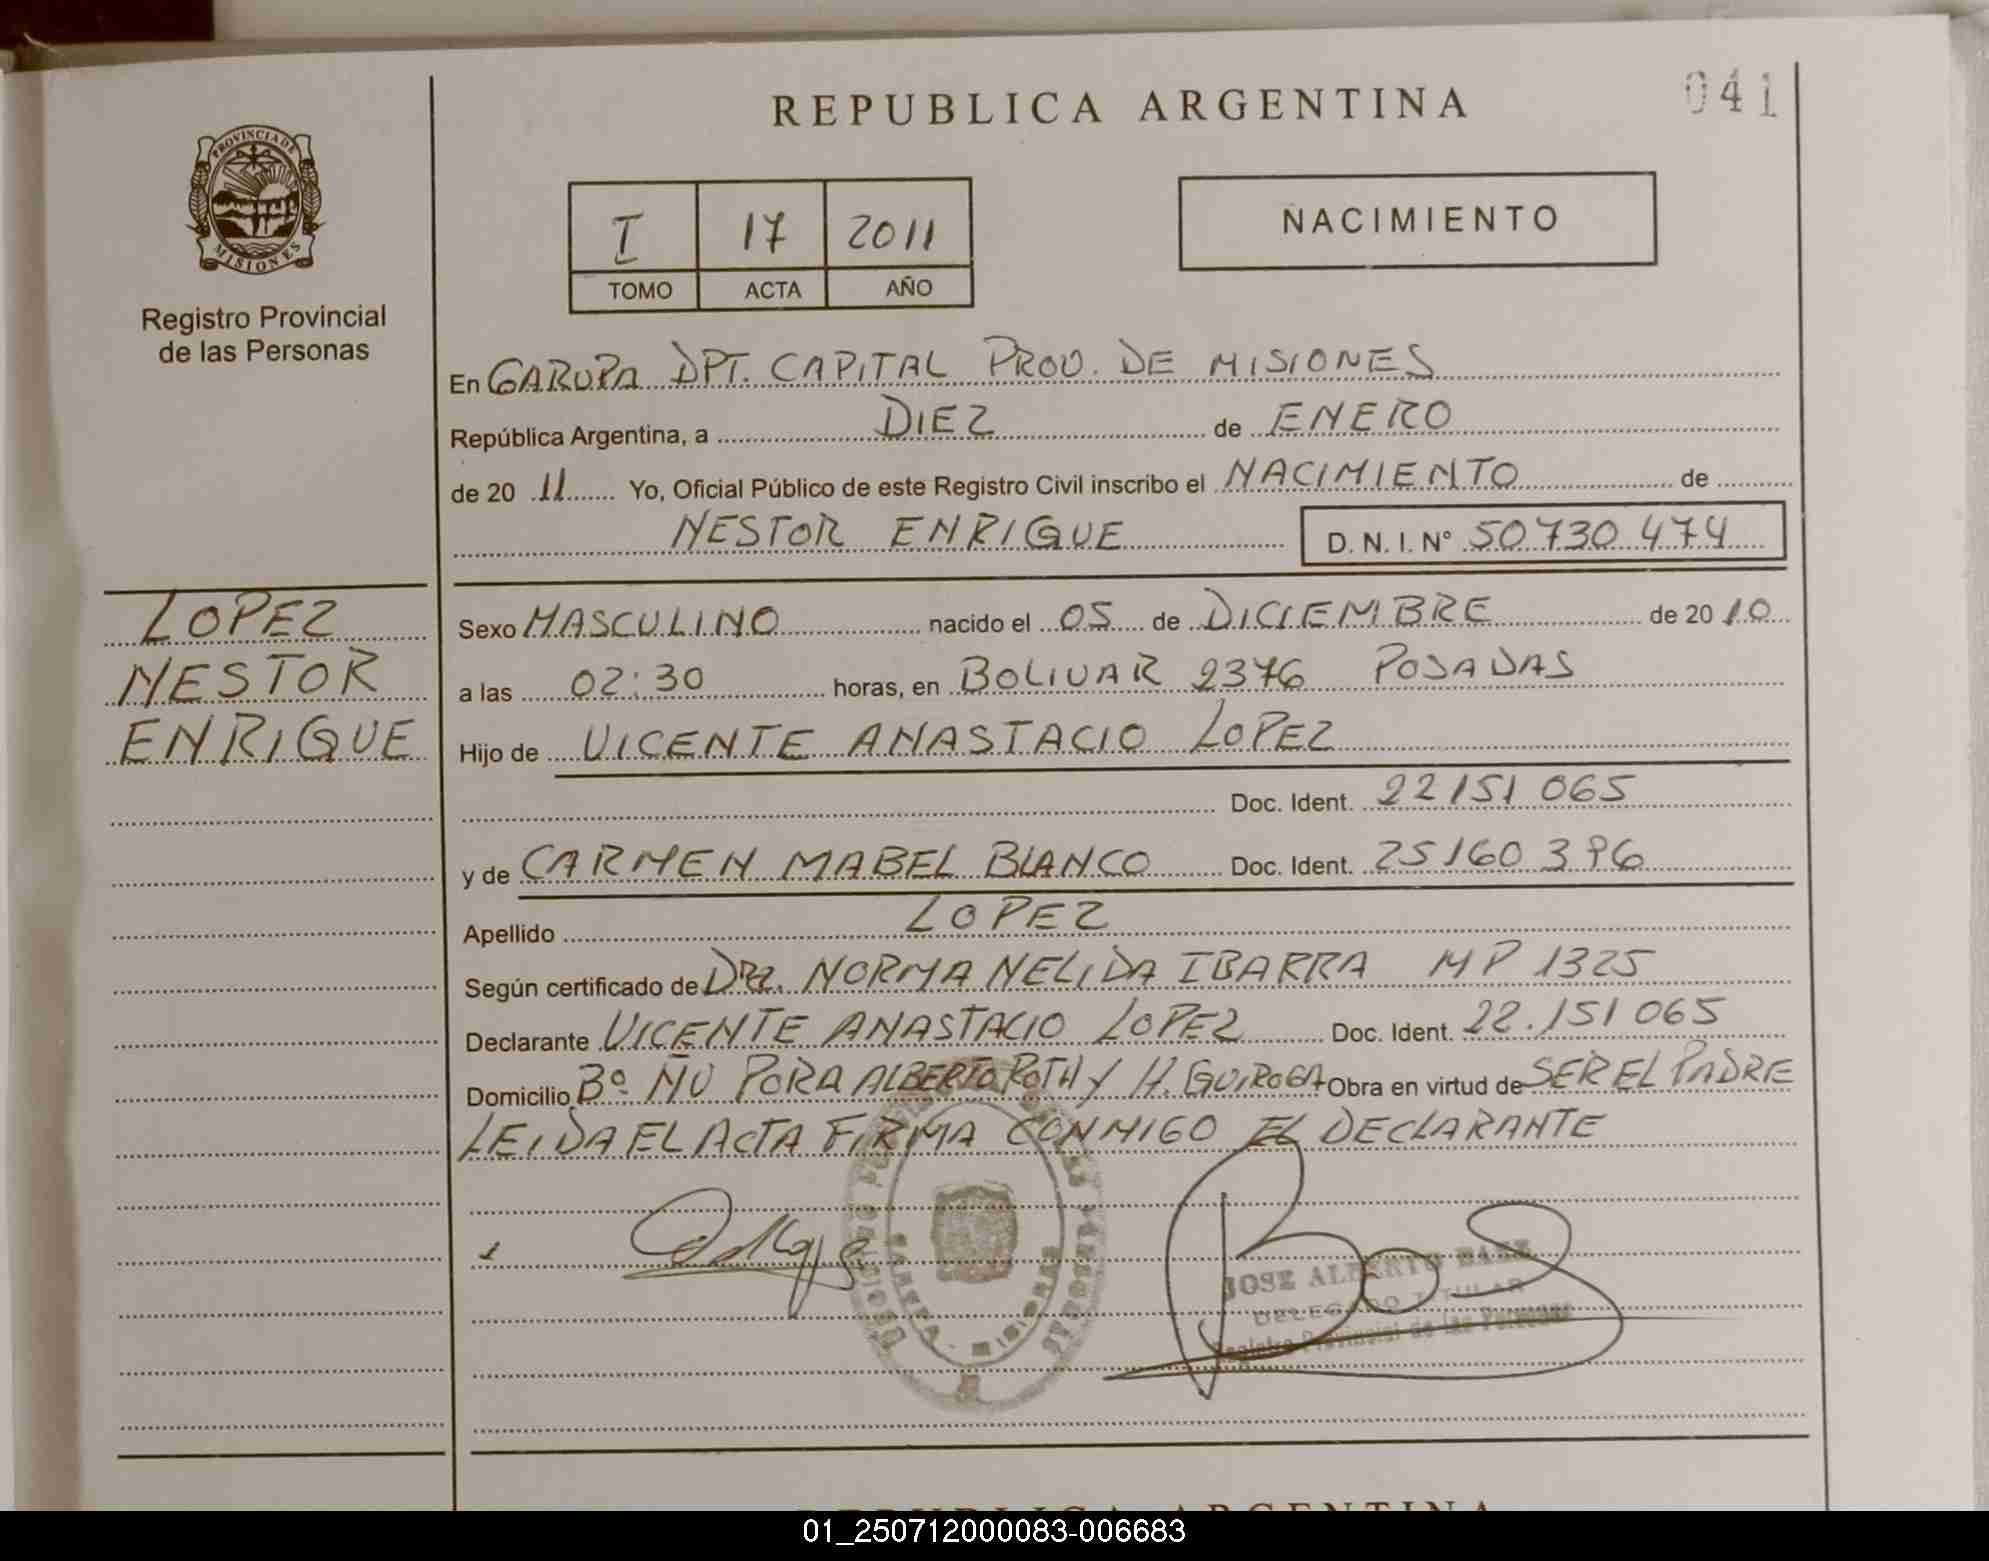 REPUBLICA ARGENTINA
041
PROVINCIA DE
MISIONES
Registro Provincial
de las Personas
I 17 2011
TOMO ACTA AÑO
NACIMIENTO
En GARUPA DPT. CAPITAL PROV. DE MISIONES
República Argentina, a DIEZ de ENERO
de 20 11 Yo, Oficial Público de este Registro Civil inscribo el NACIMIENTO de
NESTOR ENRIQUE D. N. I. N° 50 730 474
LOPEZ
NESTOR
ENRIQUE
Sexo MASCULINO nacido el 05 de DICIEMBRE de 20 10
a las 02:30 horas, en BOLIVAR 2376 POSADAS
Hijo de VICENTE ANASTACIO LOPEZ
Doc. Ident. 22 151 065
y de CARMEN MABEL BLANCO Doc. Ident. 25 160 396
Apellido LOPEZ
Según certificado de Dra. NORMA NELIDA IBARRA MP 1325
Declarante VICENTE ANASTACIO LOPEZ Doc. Ident. 22.151 065
Domicilio Bº ÑU PORA ALBERTO ROTH Y H. GUIROGA Obra en virtud de SER EL PADRE
LEIDA EL ACTA FIRMA CONMIGO EL DECLARANTE
JOSE ALBERTO BAEZ
DELEGADO TITULAR
Registro Provincial de las Personas
REPUBLICA ARGENTINA
01_250712000083-006683